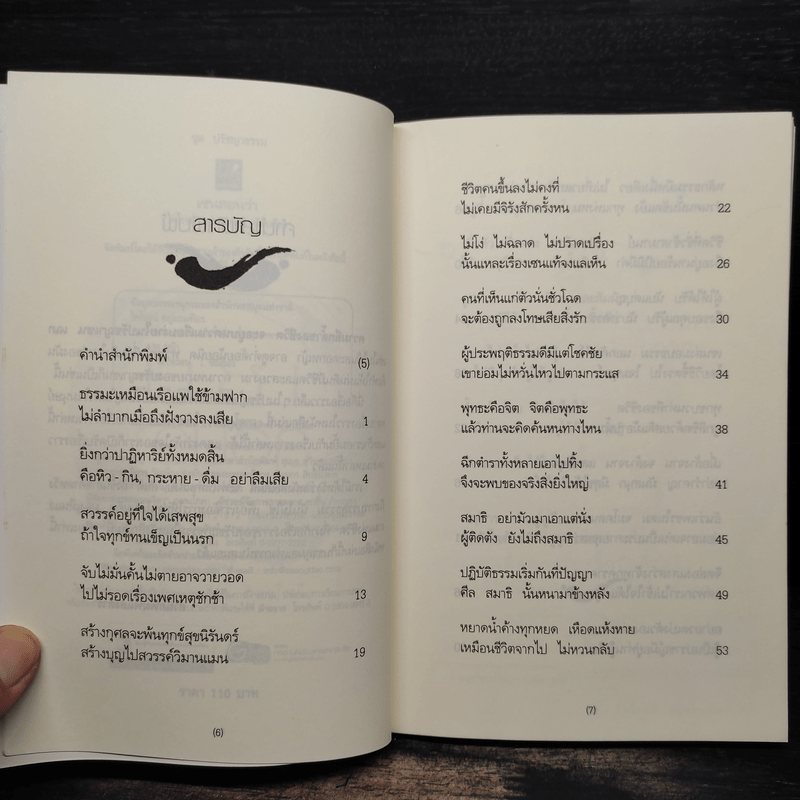 สารบัญ
คำนำสำนักพิมพ์ (5)
ธรรมะเหมือนเรือแพใช้ข้ามฟาก
ไม่ลำบากเมื่อถึงฝั่งวางลงเสีย 1
ยิ่งกว่าปาฏิหาริย์ทั้งหมดสิ้น
คือหิว - กิน, กระหาย - ดื่ม อย่าลืมเสีย 4
สวรรค์อยู่ที่ใจได้เสพสุข
ถ้าใจทุกข์ทนเข็ญเป็นนรก 9
จับไม่มั่นคั้นไม่ตายอาจวายวอด
ไปไม่รอดเรื่องเพศเหตุชักช้า 13
สร้างกุศลจะพ้นทุกข์สุขนิรันดร์
สร้างบุญไปสวรรค์วิมานแมน 19
(6)
ชีวิตคนขึ้นลงไม่คงที่
ไม่เคยมีจิรังสักครั้งหน 22
ไม่โง่ ไม่ฉลาด ไม่ปราดเปรื่อง
นั้นแหละเรื่องเซนแท้จงแลเห็น 26
คนที่เห็นแก่ตัวนั่นชั่วโฉด
จะต้องถูกลงโทษเสียสิ่งรัก 30
ผู้ประพฤติธรรมดีมีแต่โชคชัย
เขาย่อมไม่หวั่นไหวไปตามกระแส 34
พุทธะคือจิต จิตคือพุทธะ
แล้วท่านจะคิดค้นหนทางไหน 38
ฉีกตำราทั้งหลายเอาไปทิ้ง
จึงจะพบของจริงสิ่งยิ่งใหญ่ 41
สมาธิ อย่ามัวเมาเอาแต่นั่ง
ผู้ติดตั่ง ยังไม่ถึงสมาธิ 45
ปฏิบัติธรรมเริ่มกันที่ปัญญา
ศีล สมาธิ นั้นหนามาข้างหลัง 49
หยาดน้ำค้างทุกหยด เหือดแห้งหาย
เหมือนชีวิตจากไป ไม่หวนกลับ 53
(7)